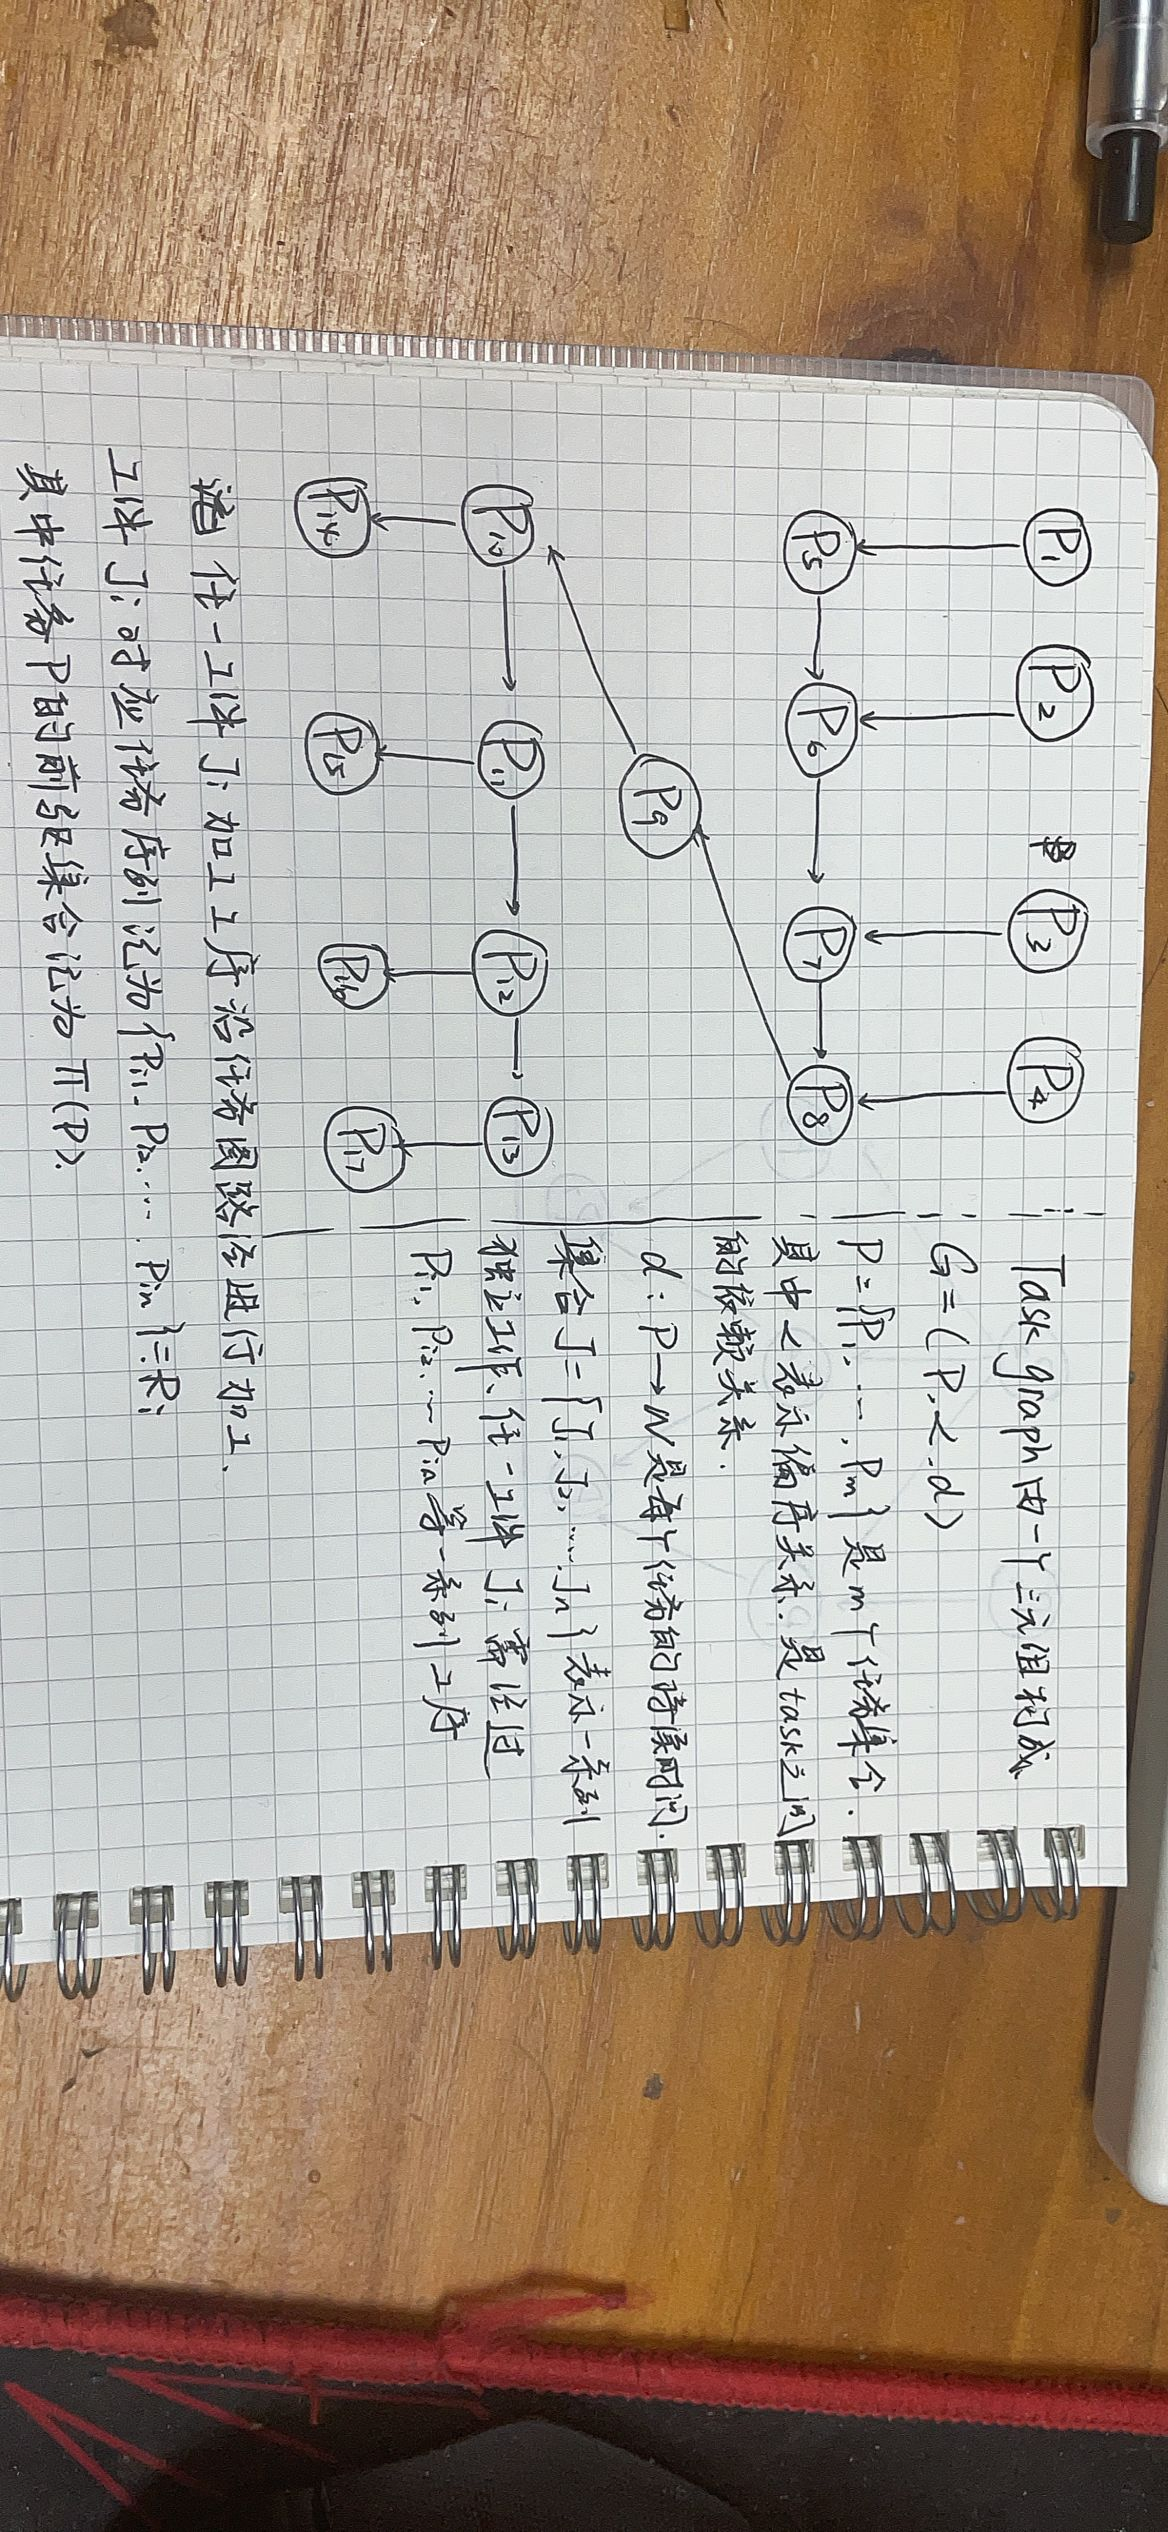 P1 P2 P3 P4
P5 P6 P7 P8
P9
P10 P11 P12 P13
P14 P15 P16 P17
Task graph由一个三元组构成
G=(P,<,d)
P={P1,...,Pm}是m个任务集合.
其中<表示偏序关系.是task之间
的依赖关系.
d:P→N是每个任务的持续时间.
集合J={J1,J2,....Jn}表示一系列
独立工作、任一工件Ji需经过
Pi1,Pi2,...Pin等一系列工序
任一工件Ji加工工序沿任务图路径进行加工、
工件Ji对应任务序列记为{Pi1,Pi2,....Pin}≡Ri
其中任务P的前驱集合记为π(P).